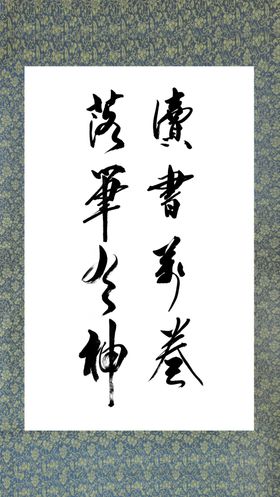 讀書萬卷
落筆入神